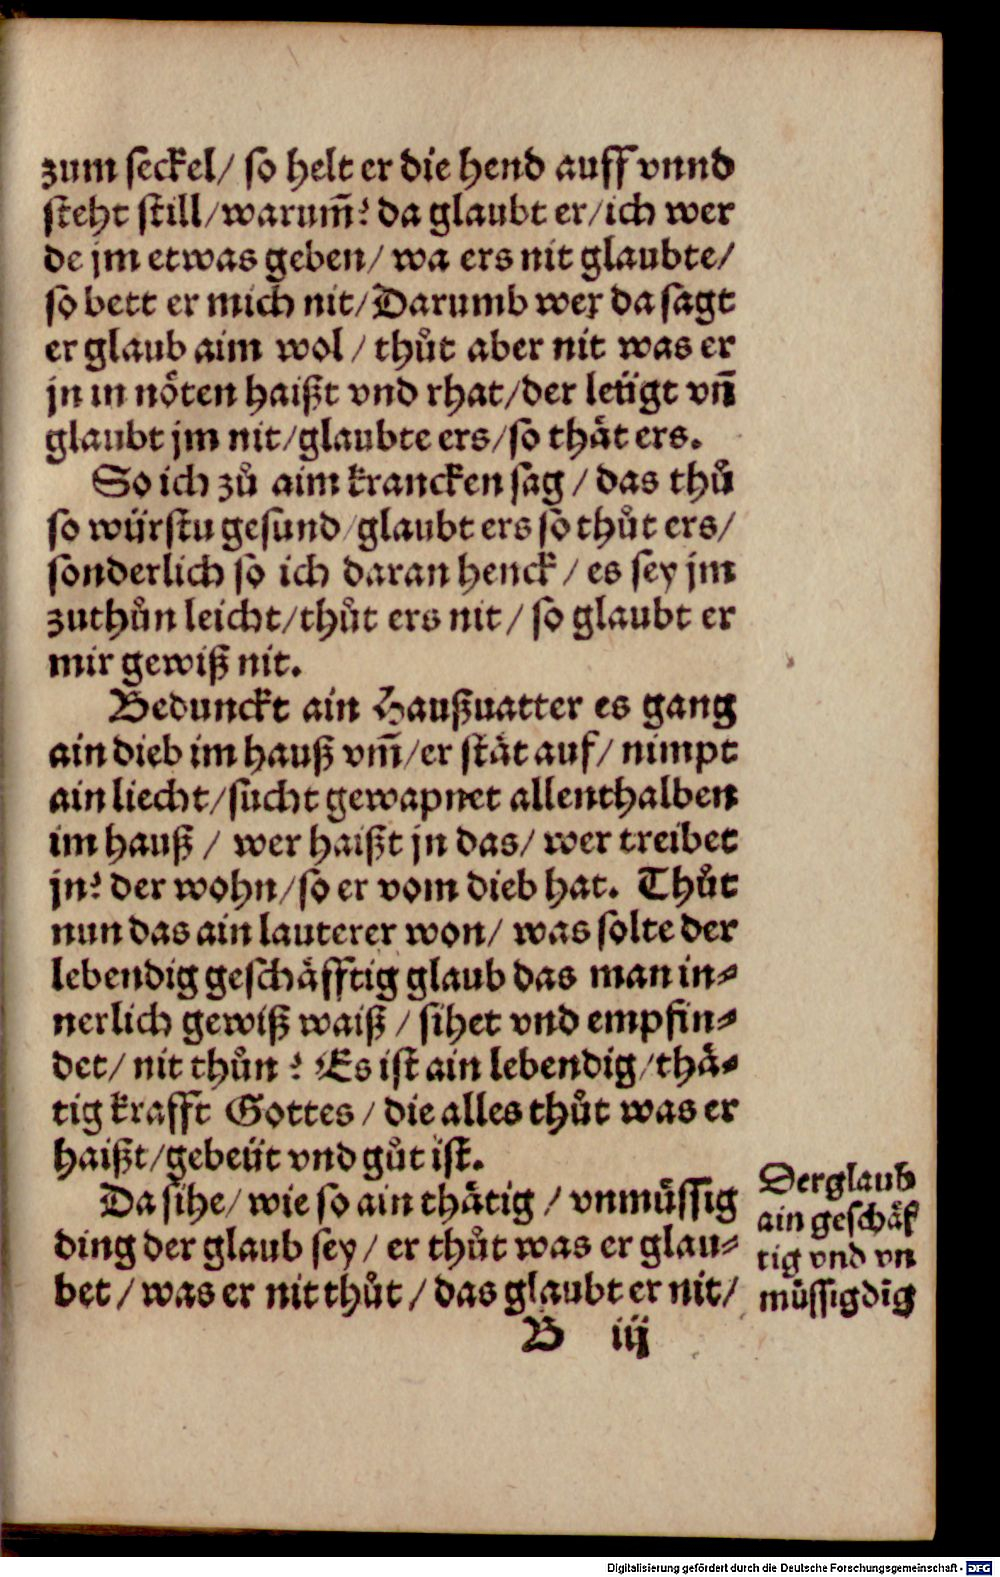 zum seckel/ so helt er die hend auff vnnd
steht still/warum̄? da glaubt er/ich wer
de jm etwas geben/ wa ers nit glaubte/
so bett er mich nit/Darumb wer da sagt
er glaub aim wol / thůt aber nit was er
jn in nöten haißt vnd rhat/der leügt vñ
glaubt jm nit/glaubte ers/so thät ers.
So ich zů aim krancken sag / das thů
so würstu gesund/glaubt ers so thůt ers/
sonderlich so ich daran henck / es sey jm
zuthůn leicht/thůt ers nit / so glaubt er
mir gewiß nit.
Bedunckt ain Haußuatter es gang
ain dieb im hauß vm̄/er stät auf/ nimpt
ain liecht/sucht gewapnet allenthalben
im hauß / wer haißt jn das/ wer treibet
jn? der wohn/so er vom dieb hat. Thůt
nun das ain lauterer won/ was solte der
lebendig geschäfftig glaub das man in⸗
nerlich gewiß waiß / sihet vnd empfin⸗
det/ nit thůn ? Es ist ain lebendig/thä⸗
tig krafft Gottes / die alles thůt was er
haißt/gebeüt vnd gůt ist.
Da sihe/ wie so ain thätig / vnmüssig
ding der glaub sey / er thůt was er glau⸗
bet / was er nit thůt / das glaubt er nit/
Der glaub
ain geschäf
tig vnd vn
müssig dīg
B iij
Digitalisierung gefördert durch die Deutsche Forschungsgemeinschaft - DFG